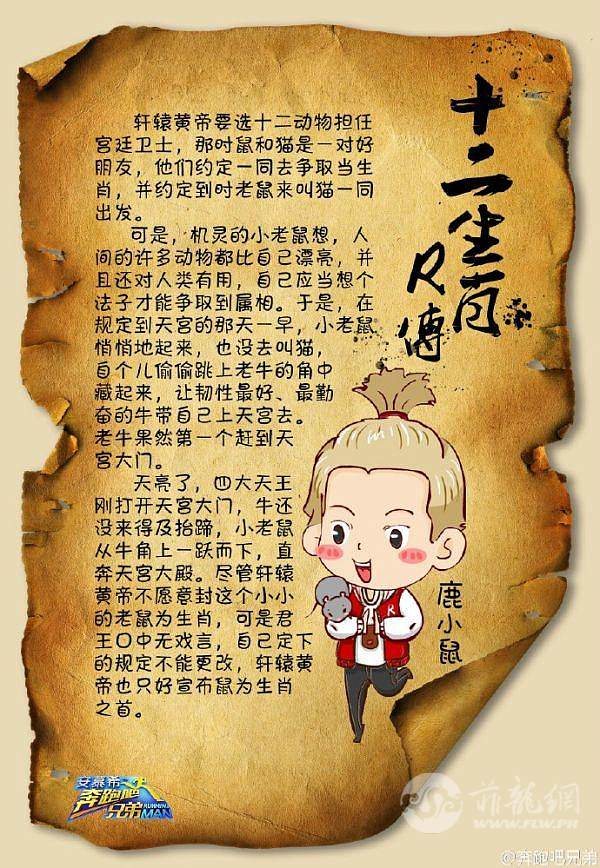 十二生肖
R傳
轩辕黄帝要选十二动物担任
宫廷卫士，那时鼠和猫是一对好
朋友，他们约定一同去争取当生
肖，并约定到时老鼠来叫猫一同
出发。
可是，机灵的小老鼠想，人
间的许多动物都比自己漂亮，并
且还对人类有用，自己应当想个
法子才能争取到属相。于是，在
规定到天宫的那天一早，小老鼠
悄悄地起来，也没去叫猫，
自个儿偷偷跳上老牛的角中
藏起来，让韧性最好、最勤
奋的牛带自己上天宫去。
老牛果然第一个赶到天
宫大门。
天亮了，四大天王
刚打开天宫大门，牛还
没来得及抬蹄，小老鼠
从牛角上一跃而下，直
奔天宫大殿。尽管轩辕
黄帝不愿意封这个小小
的老鼠为生肖，可是君
王口中无戏言，自己定下
的规定不能更改，轩辕黄
帝也只好宣布鼠为生肖
之首。
R
鹿小鼠
安慕希
奔跑吧
兄弟
RUNNING MAN
菲龍網
WWW.FLW.PH
@奔跑吧兄弟